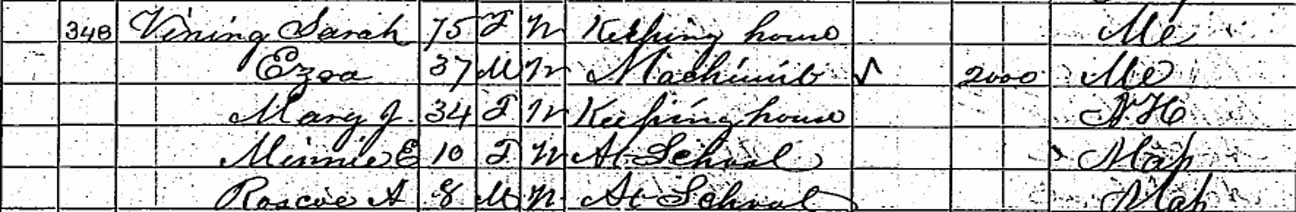 348 Vining Sarah 75 F W Keeping house Me
Ezra 37 M W Machinist √ 2000 Me
Mary J. 34 F W Keeping house N H
Minnie E 10 F W At School Mass
Roscoe A 8 M W At School Mass